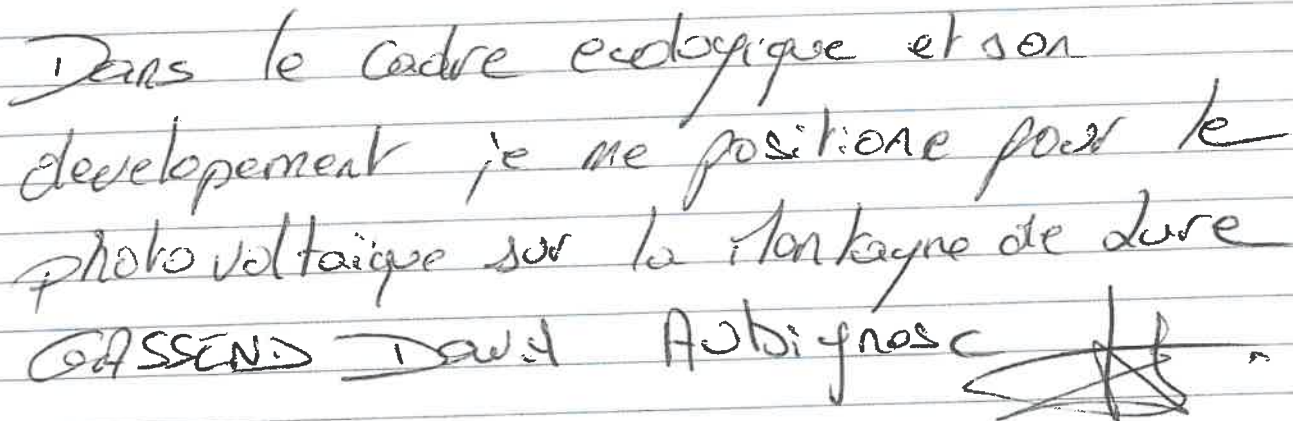 Dans le cadre ecologique et son
developement je me positione pour le
photovoltaïque sur la Montagne de Lure
GASSEND David Aubignosc